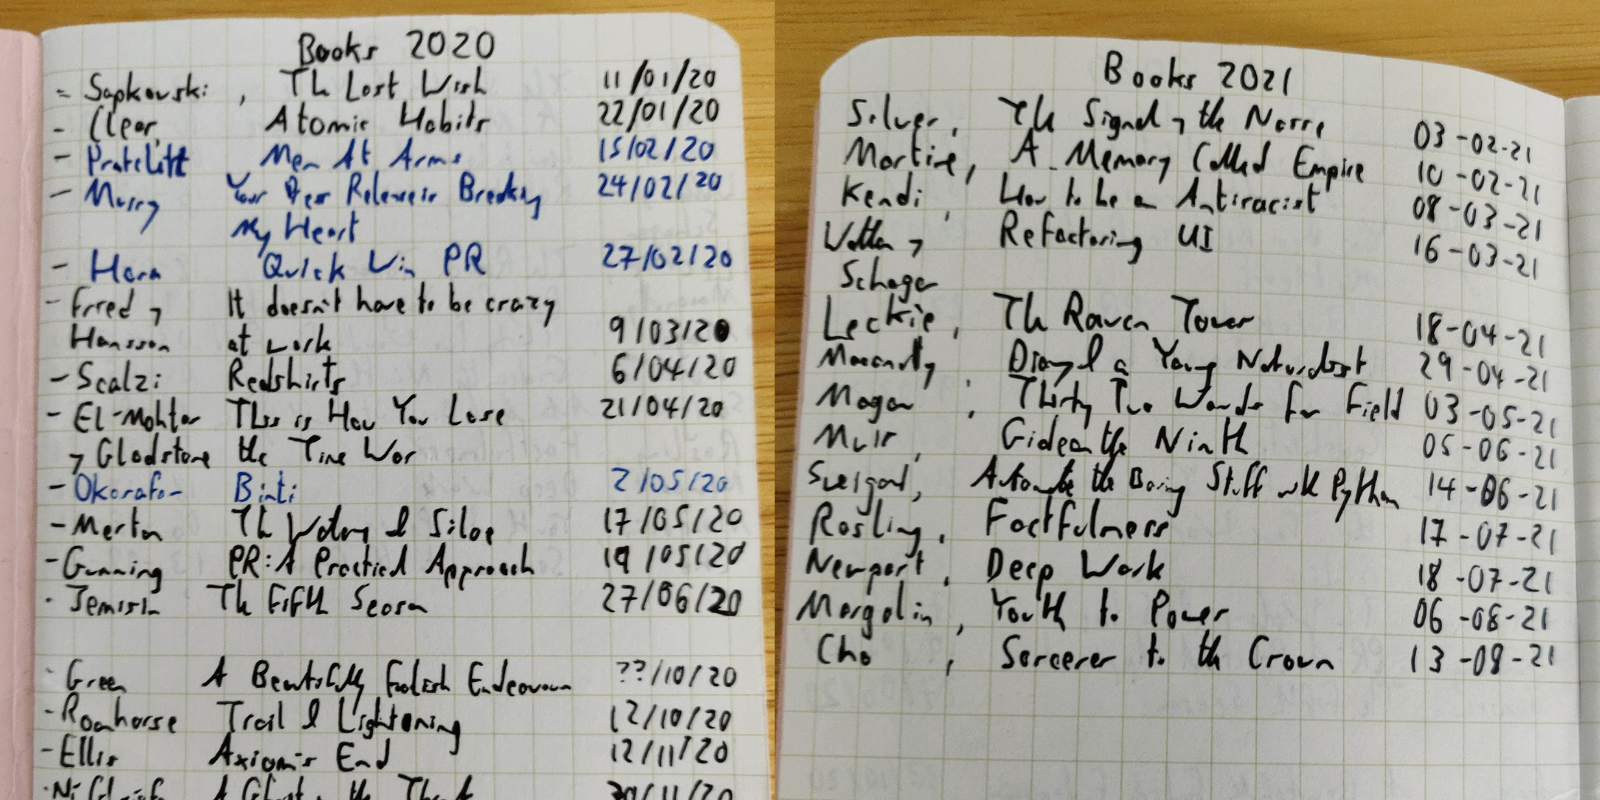 Books 2020
- Sapkowski, The Last Wish 11/01/20
- Clear, Atomic Habits 22/01/20
- Pratchett Men At Arms 15/02/20
- Murray Your Press Release is Breaking 24/02/20
My Heart
- Hora Quick Win PR 27/02/20
- Fried & It doesn't have to be crazy
Hansson at work 9/03/20
- Scalzi Redshirts 6/04/20
- El-Mohtar This is How You Lose 21/04/20
& Gladstone the Time War
- Okorafor Binti 2/05/20
- Merton The Wisdom of 17/05/20
- Gunning PR: A Practical Approach 19/05/20
- Jemisin The Fifth Season 27/06/20
- Green A Beautifully Foolish Endeavour ??/10/20
- Roanhorse Trail of Lightning 12/10/20
- Ellis Axiom's End 12/11/20
- A Ghost in the Throat 30/11/20
Books 2021
Silver, The Signal & the Noise 03-02-21
Martine, A Memory Called Empire 10-02-21
Kendi, How to be an Antiracist 08-03-21
Wathan & Refactoring UI 16-03-21
Schoger
Leckie, The Raven Tower 18-04-21
McAnulty Diary of a Young Naturalist 29-04-21
Magan, Thirty Two Words for Field 03-05-21
Muir, Gideon the Ninth 05-06-21
Sweigart, Automate the Boring Stuff with Python 14-06-21
Rosling, Factfulness 17-07-21
Newport, Deep Work 18-07-21
Margolin, Youth to Power 06-08-21
Cho, Sorcerer to the Crown 13-08-21